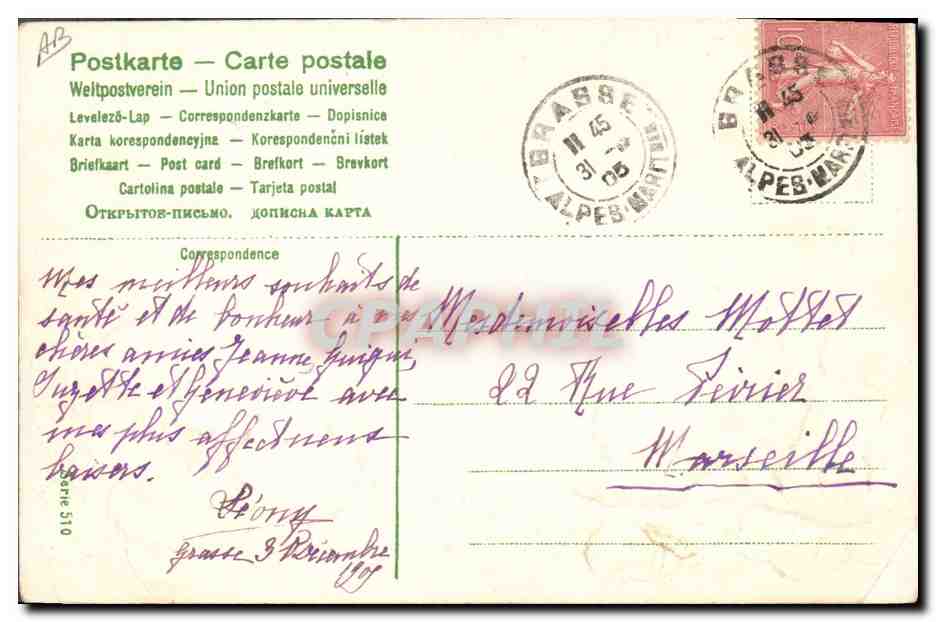 AB
Postkarte — Carte postale
Weltpostverein — Union postale universelle
Levelező-Lap — Correspondenzkarte — Dopisnice
Karta korespondencyjna — Korespondenční lístek
Briefkaart — Post card — Brefkort — Brevkort
Cartolina postale — Tarjeta postal
Открытое-письмо. дописна карта
Correspondence
Mes meilleurs souhaits de
santé et de bonheur à mes
chères amies Jeanne,
Suzette et Geneviève avec
mes plus affectueux
baisers.
Léony
Grasse 31 Décembre
1905
Serie 510
GRASSE
11 45
31
05
ALPES-MARITIMES
GRASSE
11 45
31
05
ALPES-MARITIMES
10
Mesdemoiselles Mottet
22 Rue Février
Marseille
CPAPHIL